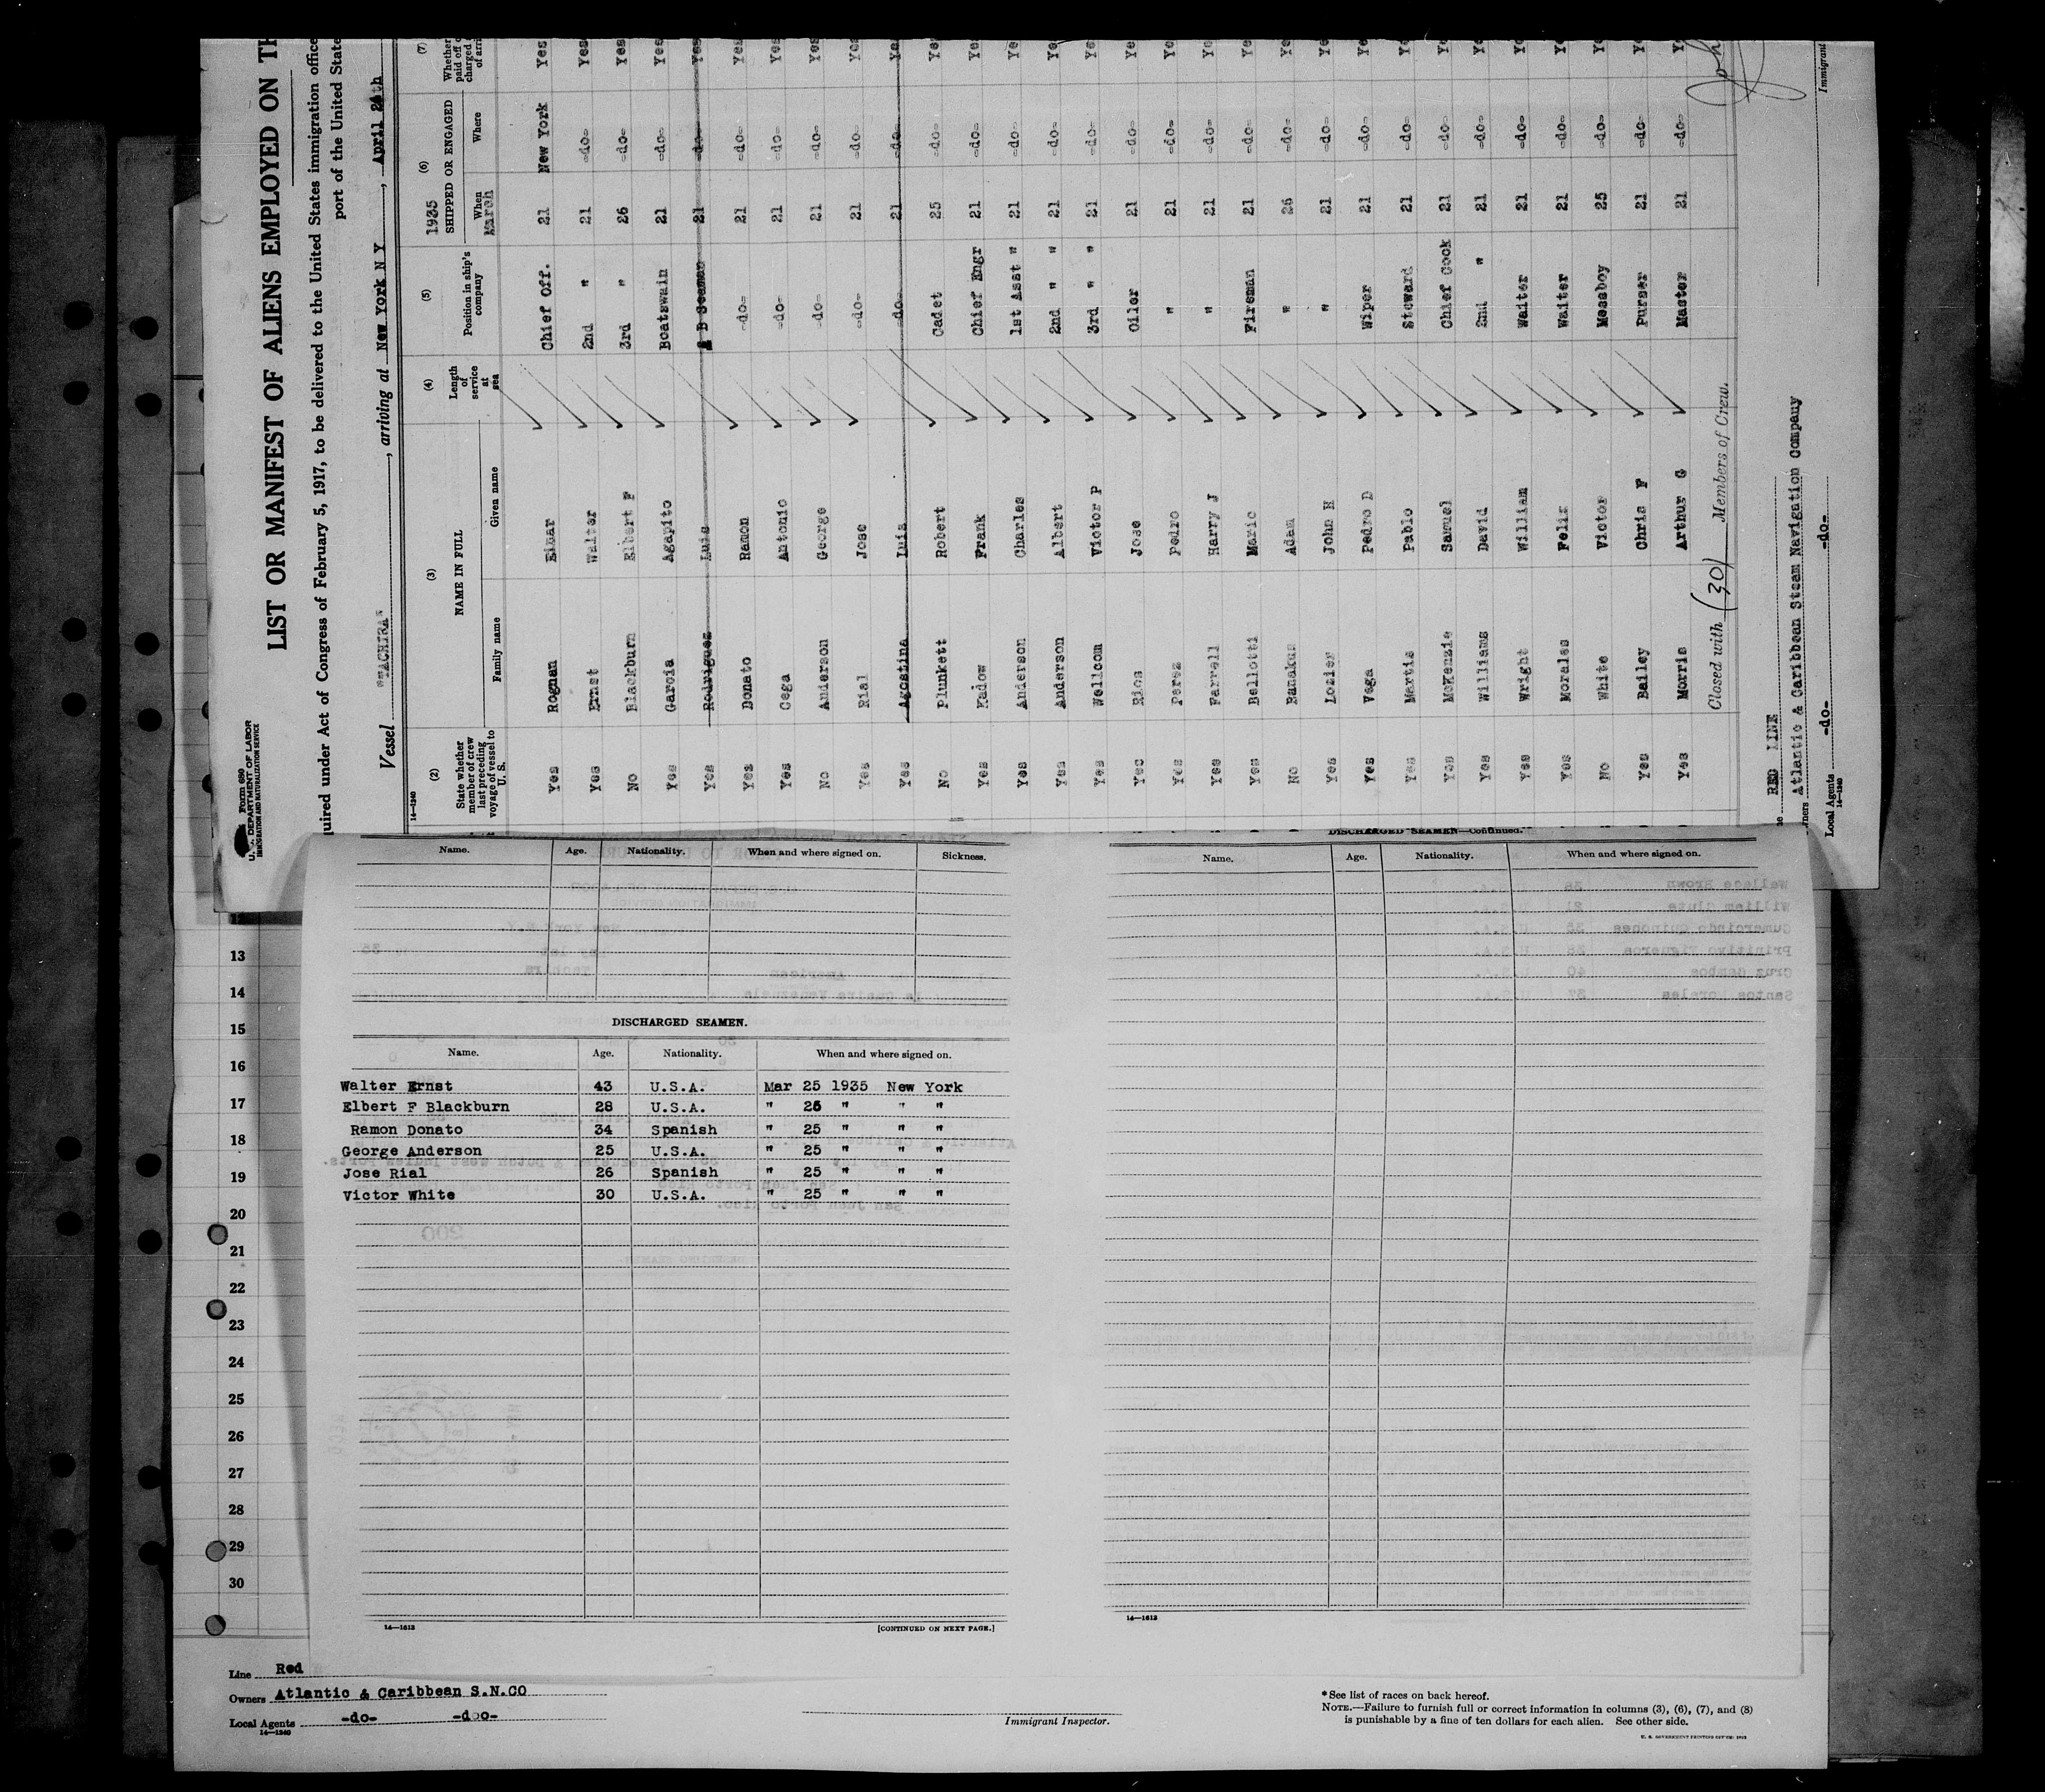 Form 680
U. S. DEPARTMENT OF LABOR
IMMIGRATION AND NATURALIZATION SERVICE
LIST OR MANIFEST OF ALIENS EMPLOYED ON TH
quired under Act of Congress of February 5, 1917, to be delivered to the United States immigration office
port of the United State
Vessel "TACHIRA", arriving at New York N Y, April 24th
14—1240
(2) (3) (4) (5) 1935 (6) (7)
State whether member of crew last preceding voyage of vessel to U. S. NAME IN FULL Length of service at sea Position in ship's company SHIPPED OR ENGAGED Whether paid off charged of arri
Family name Given name When March Where
Yes Rognan Einar Chief Off. 21 New York Yes
Yes Ernst Walter 2nd " 21 -do- Yes
No Blackburn Elbert F 3rd " 26 -do- Yes
Yes Garcia Agapito Boatswain 21 -do- Yes
Yes Rodriguez Luis A B Seaman 21 -do- Yes
Yes Donato Ramon -do- 21 -do- Yes
Yes Cega Antonio -do- 21 -do- Yes
No Anderson George -do- 21 -do- Yes
Yes Rial Jose -do- 21 -do- Yes
Yes Agostina Luis -do- 21 -do- Yes
No Plunkett Robert Cadet 25 -do- Ye
Yes Kadow Frank Chief Engr 21 -do- Ye
Yes Anderson Charles 1st Asst " 21 -do- Ye
Yes Anderson Albert 2nd " " 21 -do- Ye
Yes Wellcom Victor P 3rd " " 21 -do- Ye
Yes Rios Jose Oiler 21 -do- Ye
Yes Perez Pedro " 21 -do- Ye
Yes Farrell Harry J " 21 -do- Ye
Yes Bellotti Mario Fireman 21 -do- Ye
No Banakus Adam " 26 -do- Ye
Yes Lozier John H " 21 -do- Ye
Yes Vega Pedro D Wiper 21 -do- Ye
Yes Martis Pablo Steward 21 -do- Ye
Yes McKenzie Samuel Chief Cook 21 -do- Ye
Yes Williams David 2nd " 21 -do- Ye
Yes Wright William Waiter 21 -do- Ye
Yes Morales Felix Waiter 21 -do- Ye
No White Victor Messboy 25 -do- Yo
Yes Bailey Chris F Purser 21 -do- Ye
Yes Morris Arthur G Master 21 -do- Y
Closed with (30) Members of Crew.
Joh
Immigrant
RED LINE
Atlantic & Caribbean Steam Navigation Company
Local Agents -do- -do-
14—1240
Name. Age. Nationality. When and where signed on. Sickness.
DISCHARGED SEAMEN.
Name. Age. Nationality. When and where signed on.
Walter Ernst 43 U.S.A. Mar 25 1935 New York
Elbert F Blackburn 28 U.S.A. " 26 " " "
Ramon Donato 34 Spanish " 25 " " "
George Anderson 25 U.S.A. " 25 " " "
Jose Rial 26 Spanish " 25 " " "
Victor White 30 U.S.A. " 25 " " "
14—1613 [CONTINUED ON NEXT PAGE.]
DISCHARGED SEAMEN—Continued.
Name. Age. Nationality. When and where signed on.
14—1613
13
14
15
16
17
18
19
20
21
22
23
24
25
26
27
28
29
30
Line Red
Owners Atlantic & Caribbean S.N.CO
Local Agents -do- -doo-
14—1240
Immigrant Inspector.
*See list of races on back hereof.
NOTE.—Failure to furnish full or correct information in columns (3), (6), (7), and (8)
is punishable by a fine of ten dollars for each alien. See other side.